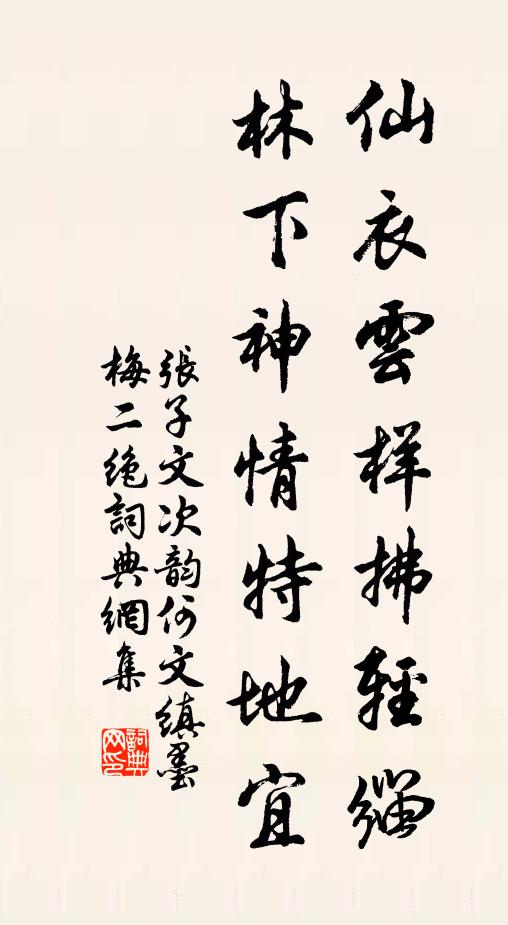 仙衣雲样拂輕緇
林下神情特地宜
張子文次韵何文縝墨
梅二絶詞典網集
詞典
网印